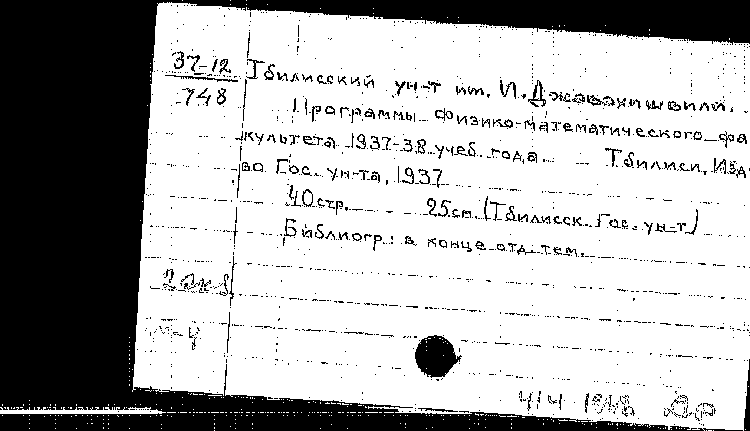 37-12
748
Тбилисский ун-т им. И. Джавахишвили.
Программы физико-математического фа
культета 1937-38 учеб. года. – Тбилиси, Изд-
во Гос. ун-та, 1937
40 стр. 25 см. (Тбилисск. Гос. ун-т)
Библиогр.: в конце отд. тем.
2 экз.
414 1948